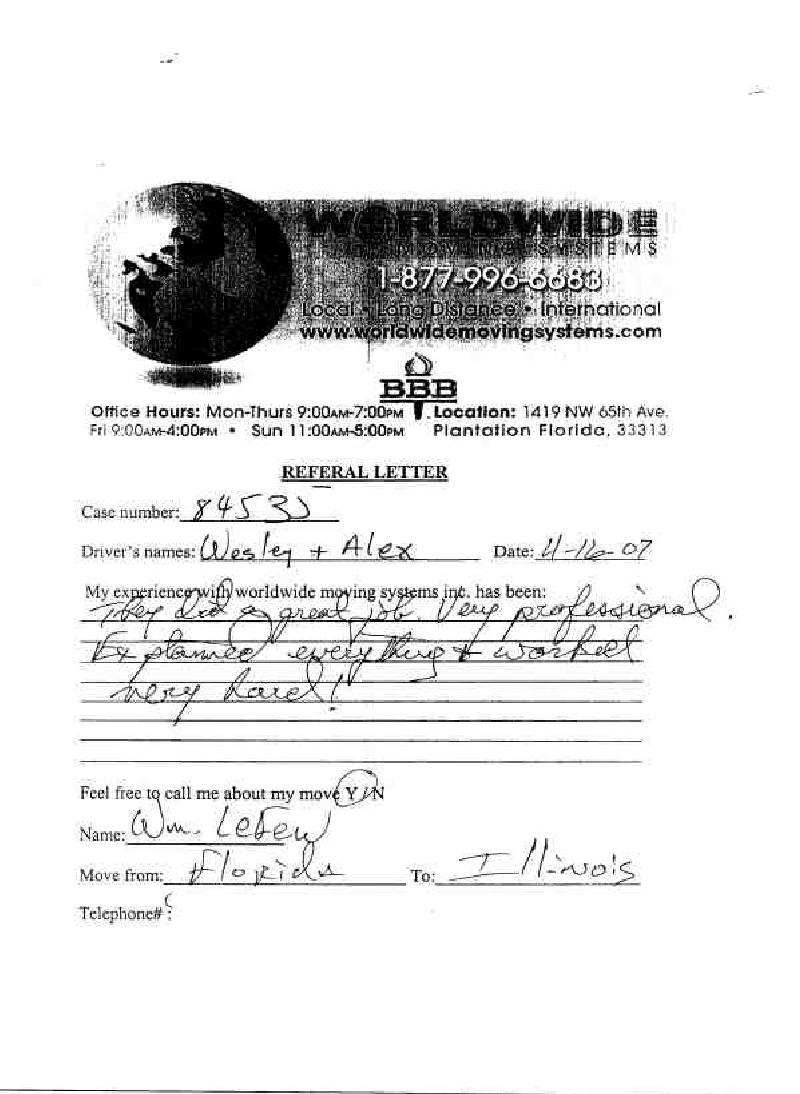 WORLDWIDE
MOVING SYSTEMS
1-877-996-6683
Local • Long Distance • International
www.worldwidemovingsystems.com
BBB
Office Hours: Mon-Thurs 9:00AM-7:00PM
Fri 9:00AM-4:00PM • Sun 11:00AM-5:00PM
Location: 1419 NW 65th Ave.
Plantation Florida, 33313
REFERAL LETTER
Case number:
Driver's names: Wesley + Alex Date: 4-16-07
My experience with worldwide moving systems inc. has been:
They did a great job. Very professional.
Explained everything + worked
very hard!
Feel free to call me about my move Y/N
Name: Wm. LeFew
Move from: Florida To: Illinois
Telephone# :